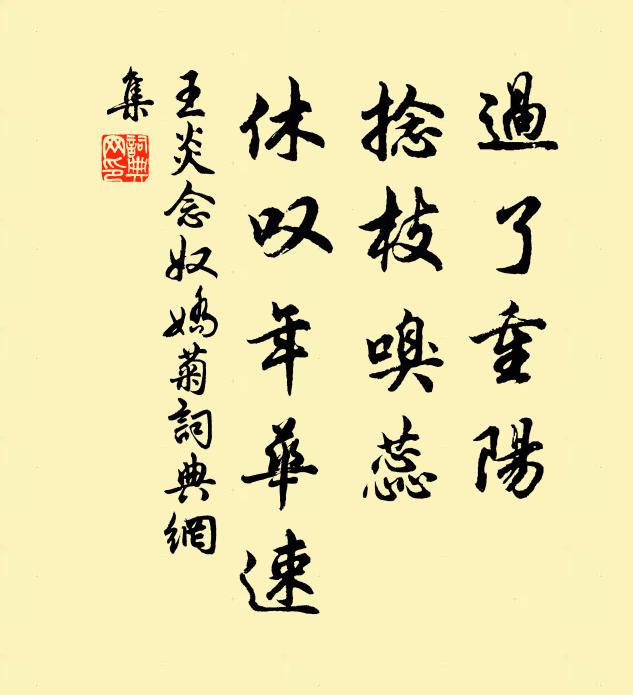 過了重陽
捻枝嗅蕊
休叹年華速
王炎念奴嬌菊詞典網
集
詞典
网印